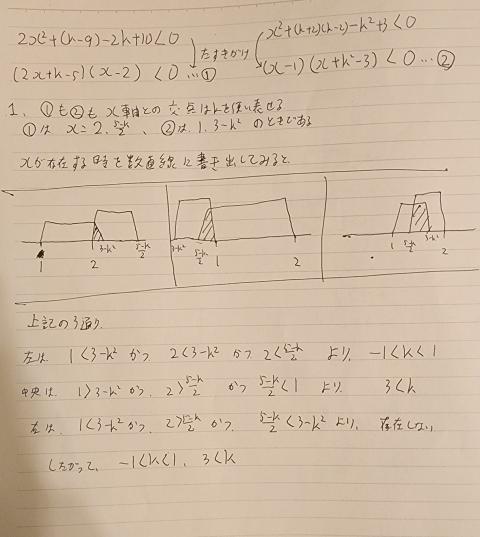 2x²+(k-9)-2k+10<0
たすきがけ
x²+(k+2)(k-2)-k²+3<0
(2x+k-5)(x-2) <0 …①
(x-1)(x+k²-3)<0 …②
1. ①も②も x軸との交点はkを使い表せる
①は x=2, 5-k/2 、 ②は 1, 3-k² のときである
xが存在する時を数直線に書き出してみると
1 2 3-k² 5-k/2
3-k² 5-k/2 1 2
1 5-k/2 3-k² 2
上記の3通り
左は 1<3-k² かつ 2<3-k² かつ 2<5-k/2 より、 -1<k<1
中央は、 1>3-k² かつ、 2>5-k/2 かつ 5-k/2<1 より 3<k
右は、 1<3-k² かつ、 2>5-k/2 かつ、 5-k/2<3-k² より、 存在しない
したがって、 -1<k<1, 3<k